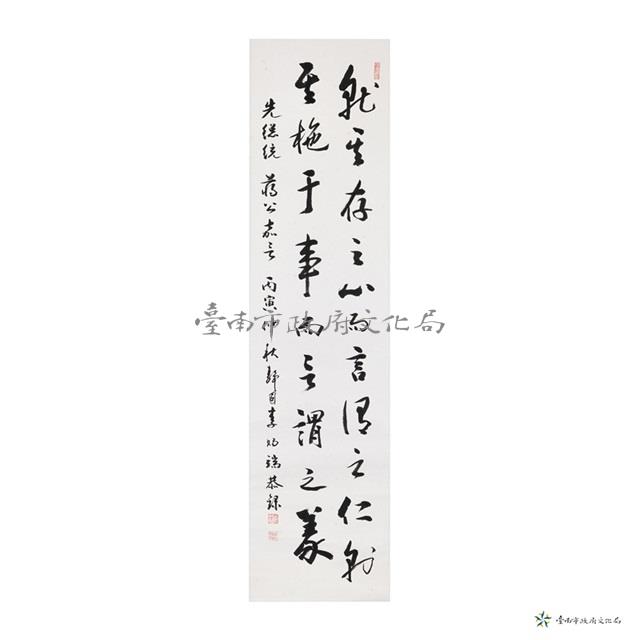 就其存之心而言謂之仁就
其施于事而言謂之義
先總統 蔣公嘉言 丙寅仲秋靜園李 瑞恭錄
臺南市政府文化局
臺南市政府文化局